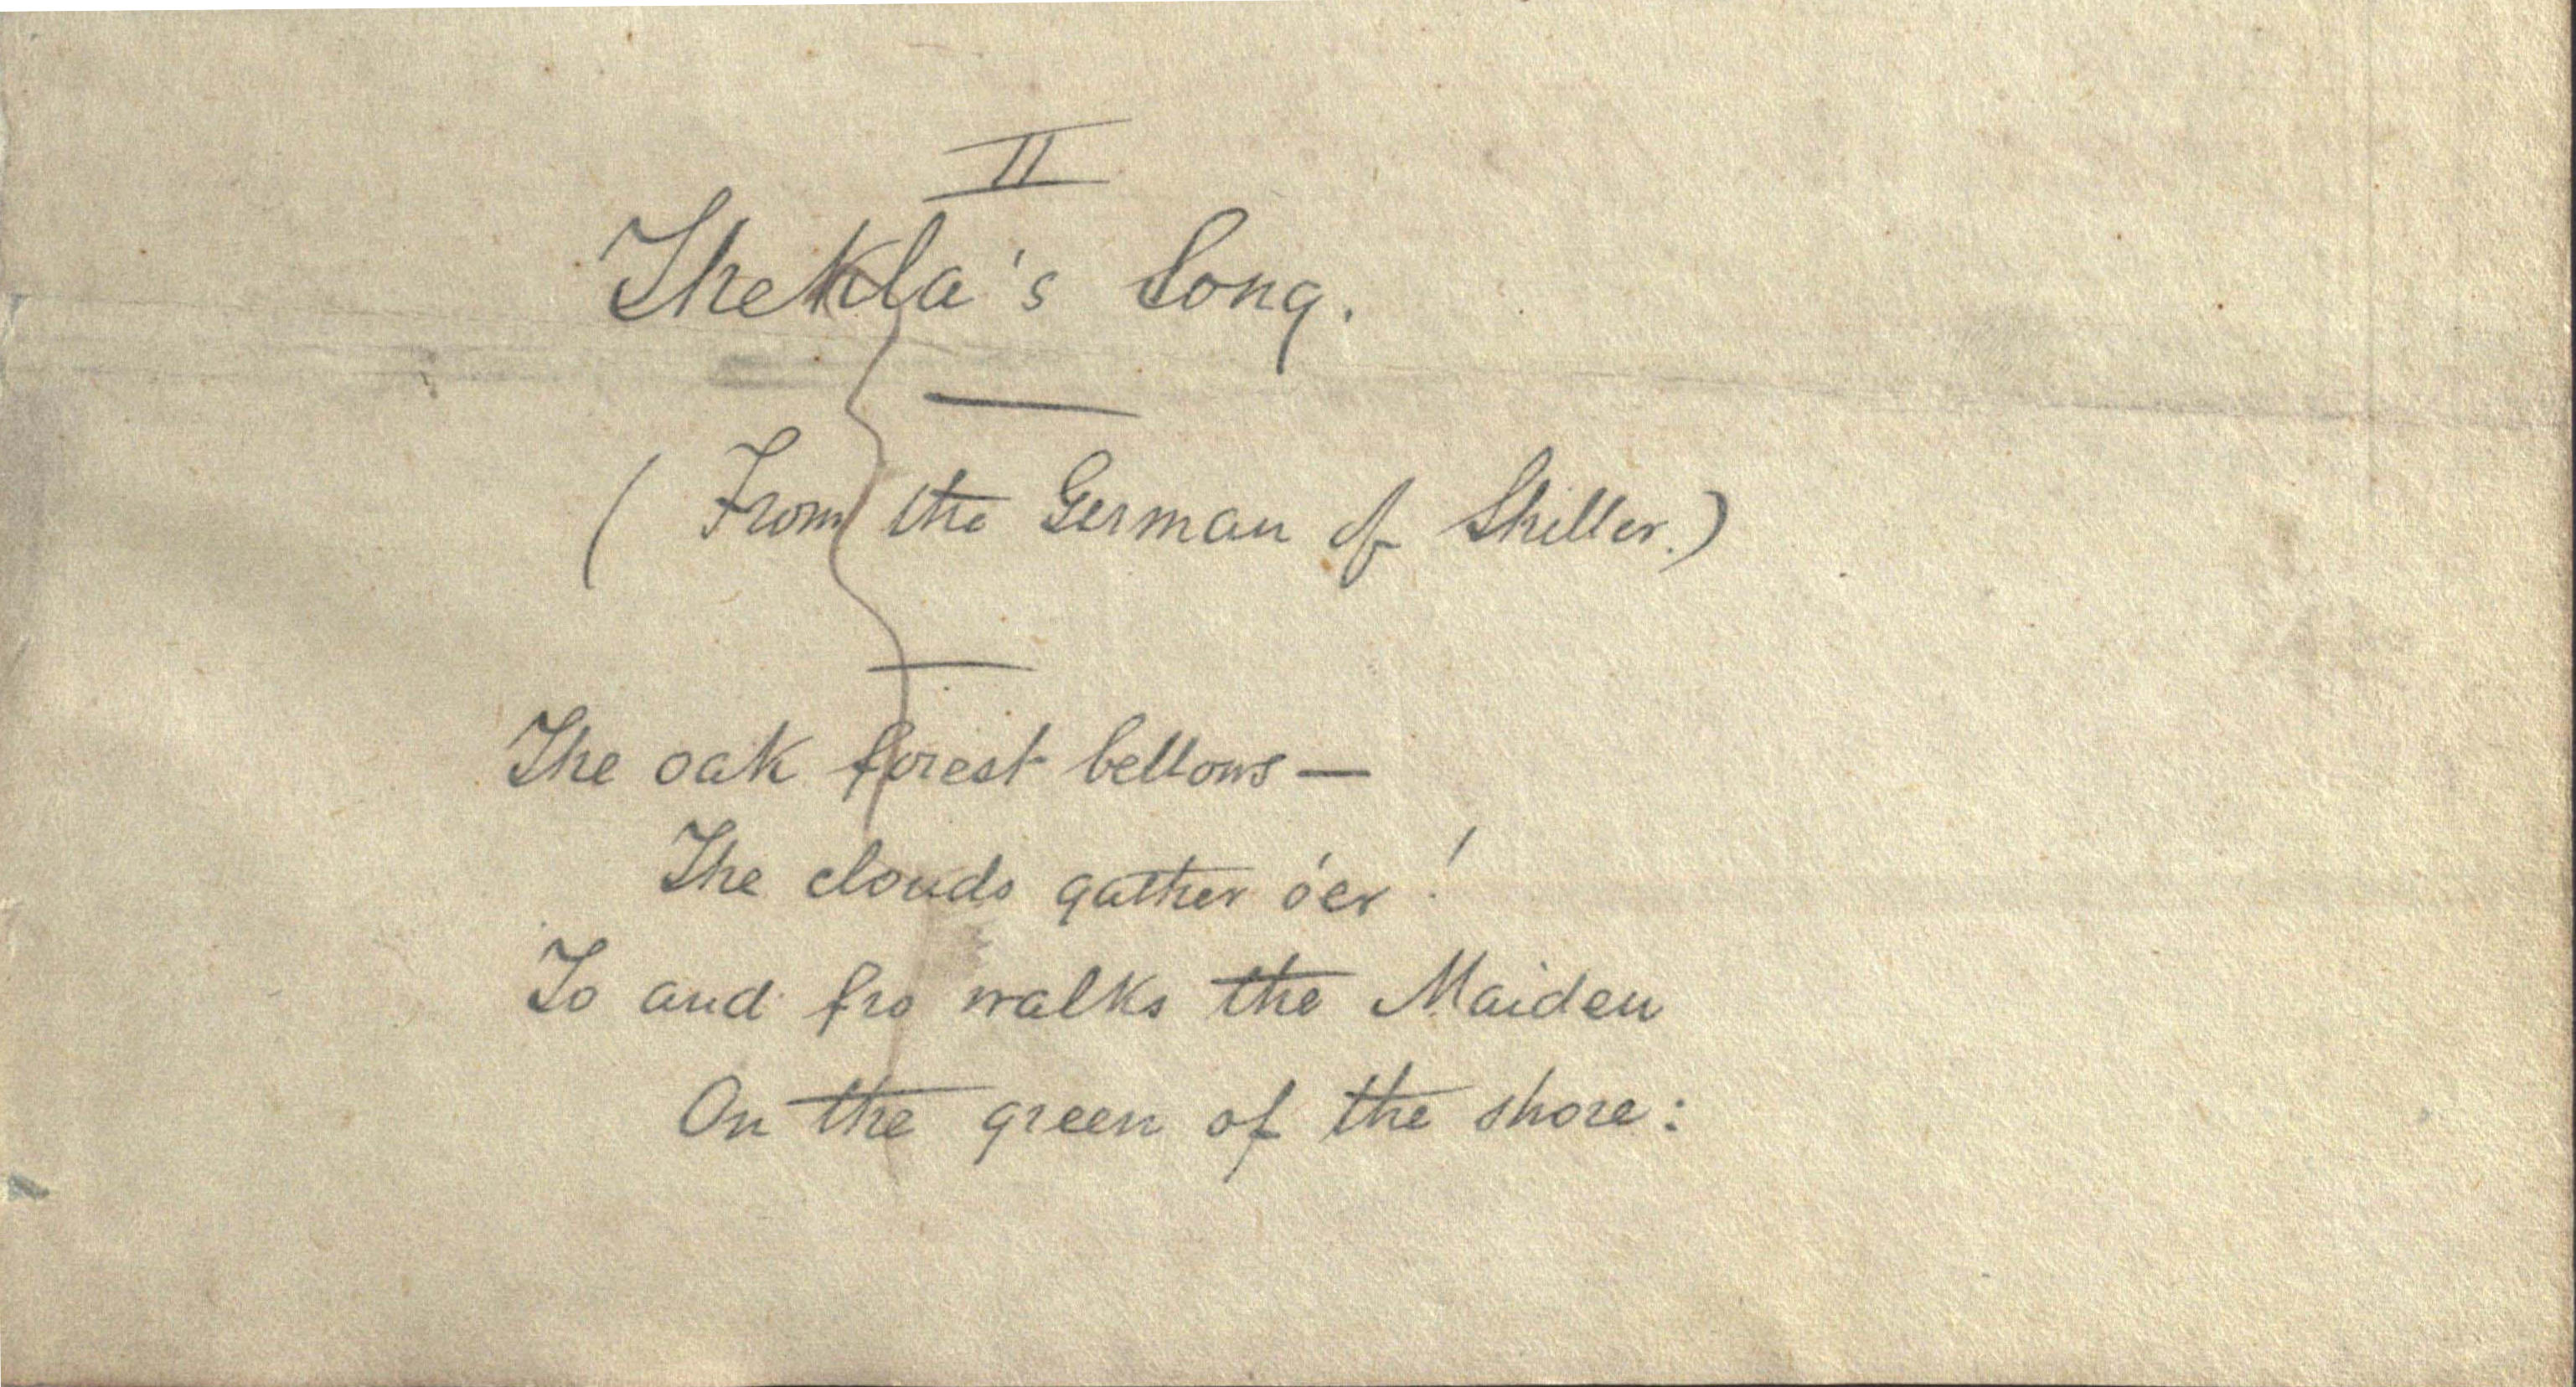 II
Thekla's Song.
(From the German of Shiller.)
The oak forest bellows—
The clouds gather o'er!
To and fro walks the Maiden
On the green of the shore: